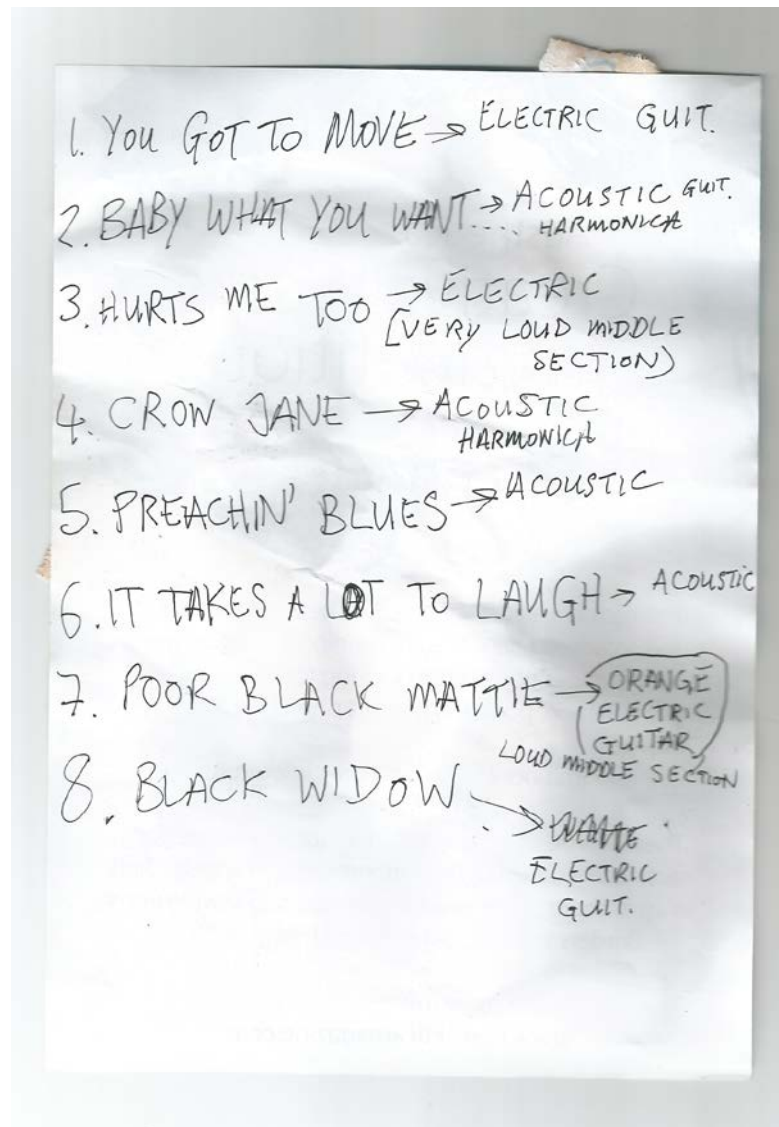 1. YOU GOT TO MOVE → ELECTRIC GUIT.
2. BABY WHAT YOU WANT.... → ACOUSTIC GUIT.
HARMONICA
3. HURTS ME TOO → ELECTRIC
(VERY LOUD MIDDLE
SECTION)
4. CROW JANE → ACOUSTIC
HARMONICA
5. PREACHIN' BLUES → ACOUSTIC
6. IT TAKES A LOT TO LAUGH → ACOUSTIC
7. POOR BLACK MATTIE → ORANGE
ELECTRIC
GUITAR
LOUD MIDDLE SECTION
8. BLACK WIDOW →
ELECTRIC
GUIT.